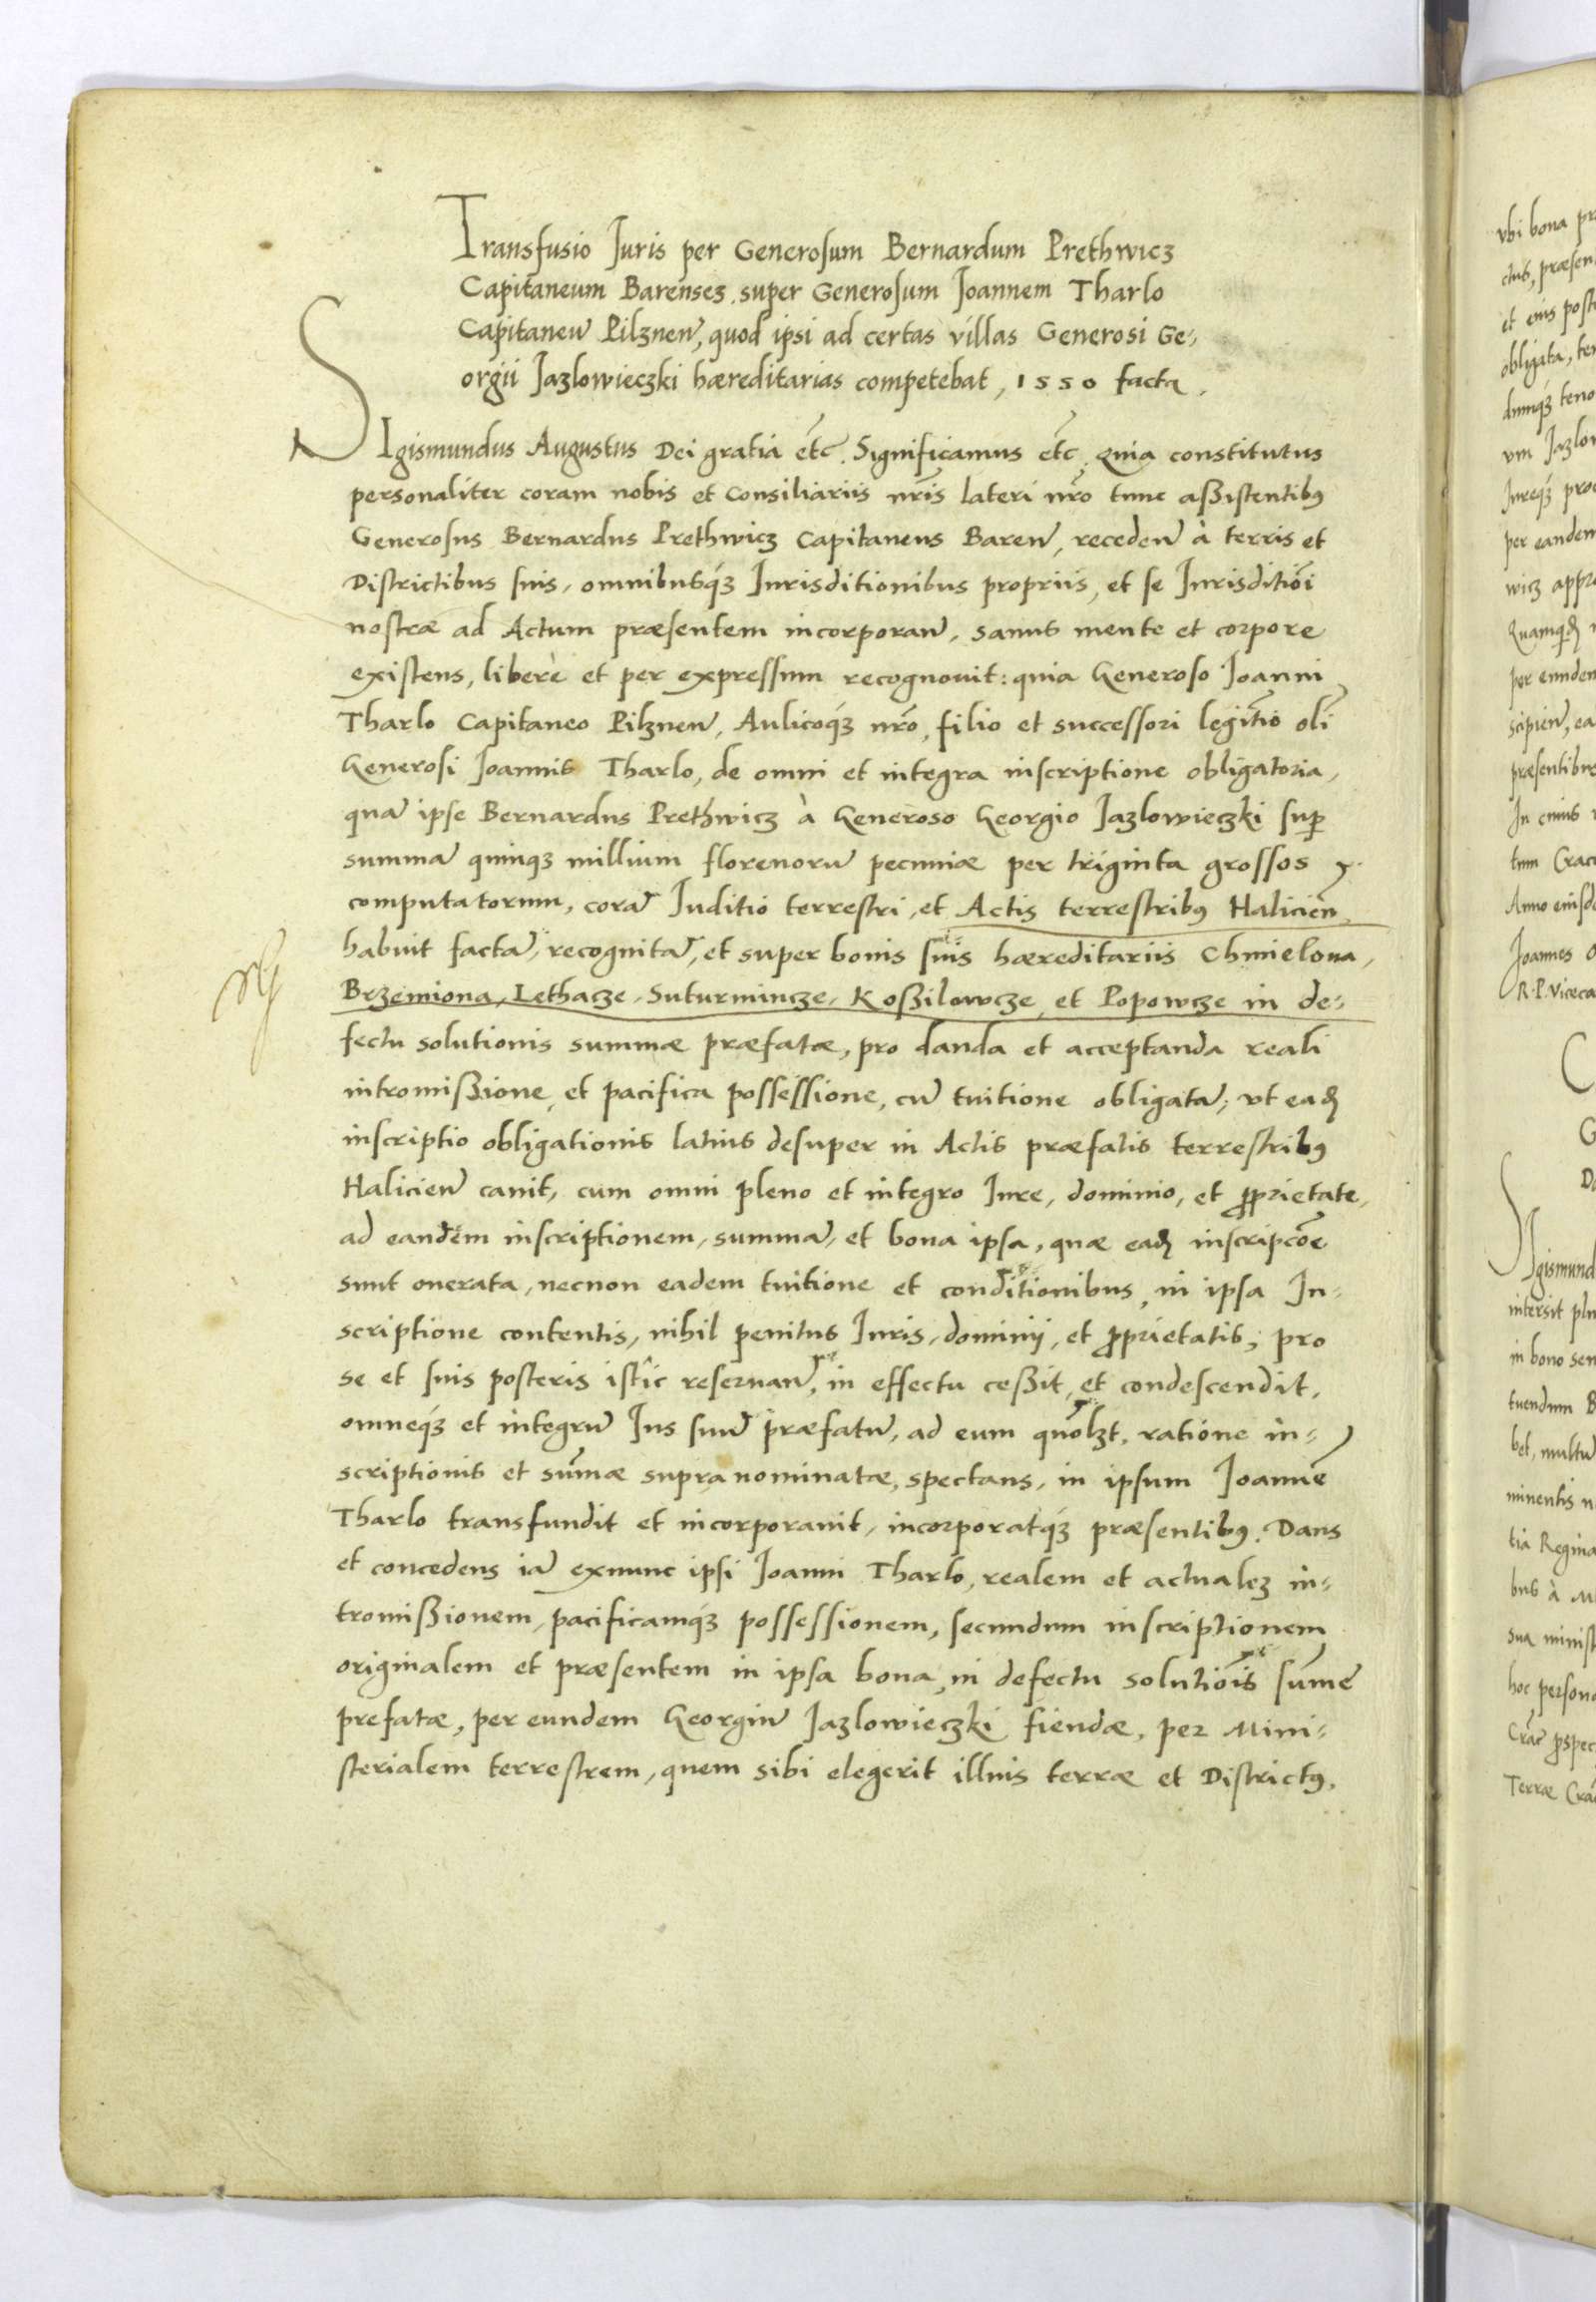 Transfusio Juris per Generosum Bernardum Prethwicz
Capitaneum Barensez super Generosum Joannem Tharlo
Capitaneū Pilznen̄, quod ipsi ad certas villas Generosi Ge-
orgii Jazlowieczki hæreditarias competebat, 1550 facta.
SIgismundus Augustus Dei gratia etc̄. Significamus etc̄. Quia constitutus
personaliter coram nobis et Consiliariis nr̄is lateri nr̄o tunc aßistentibꝰ
Generosus Bernardus Prethwicz Capitaneus Baren̄, receden̄ à terris et
Districtibus suis, omnibusq́ꝫ Jurisditionibus propriis, et se Jurisditiōi
nostræ ad Actum præsentem incorporan̄, sanus mente et corpore
existens, liberè et per expressum recognouit: quia Generoso Joanni
Tharlo Capitaneo Pilznen̄, Aulicoq́ꝫ nr̄o, filio et successori legitīō olī
Generosi Joannis Tharlo, de omni et integra inscriptione obligatoria,
quā ipse Bernardus Prethwicz à Generoso Georgio Jazlowieczki suꝑ
summā quinqꝫ millium florenorū pecuniæ per triginta grossos
computatorum, corā Juditio terrestri, et Actis terrestribꝰ Halicien̄
habuit factā, recognitā, et super bonis suis hæreditariis Chmielona,
Brzemiona, Lethacze, Suturmincze, Koßilowcze, et Popowcze in de-
fectu solutionis summæ præfatæ, pro danda et acceptanda reali
intromißione, et pacifica possessione, cū tuitione obligatā; vt eadꝫ
inscriptio obligationis latius desuper in Actis præfatis terrestribꝰ
Halicien̄ canit, cum omni pleno et integro Jure, dominio, et ꝓprietate,
ad eandem inscriptionem, summā, et bona ipsa, quæ eadꝫ inscripcōe
sunt onerata, necnon eadem tuitione et conditionibus, in ipsa In-
scriptione contentis, nihil penitus Juris, dominij, et ꝓprietatis, pro
se et suis posteris istîc reseruan̄, in effectu ceßit, et condescendit,
omneq́ꝫ et integrū Jus suū præfatū, ad eum quōlꝫt, ratione in-
scriptionis et sum̄æ supra nominatæ, spectans, in ipsum Joannē
Tharlo transfundit et incorporauit, incorporatq́ꝫ præsentibꝰ. Dans
et concedens iā exnunc ipsi Joanni Tharlo, realem et actualeꝫ in-
tromißionem, pacificamq́ꝫ possessionem, secundum inscriptionem
originalem et præsentem in ipsa bona, in defectu solutiōis sum̄e
prefatæ, per eundem Georgiū Jazlowieczki fiendæ, per Mini-
sterialem terrestrem, quem sibi elegerit illius terræ et Districtꝰ,